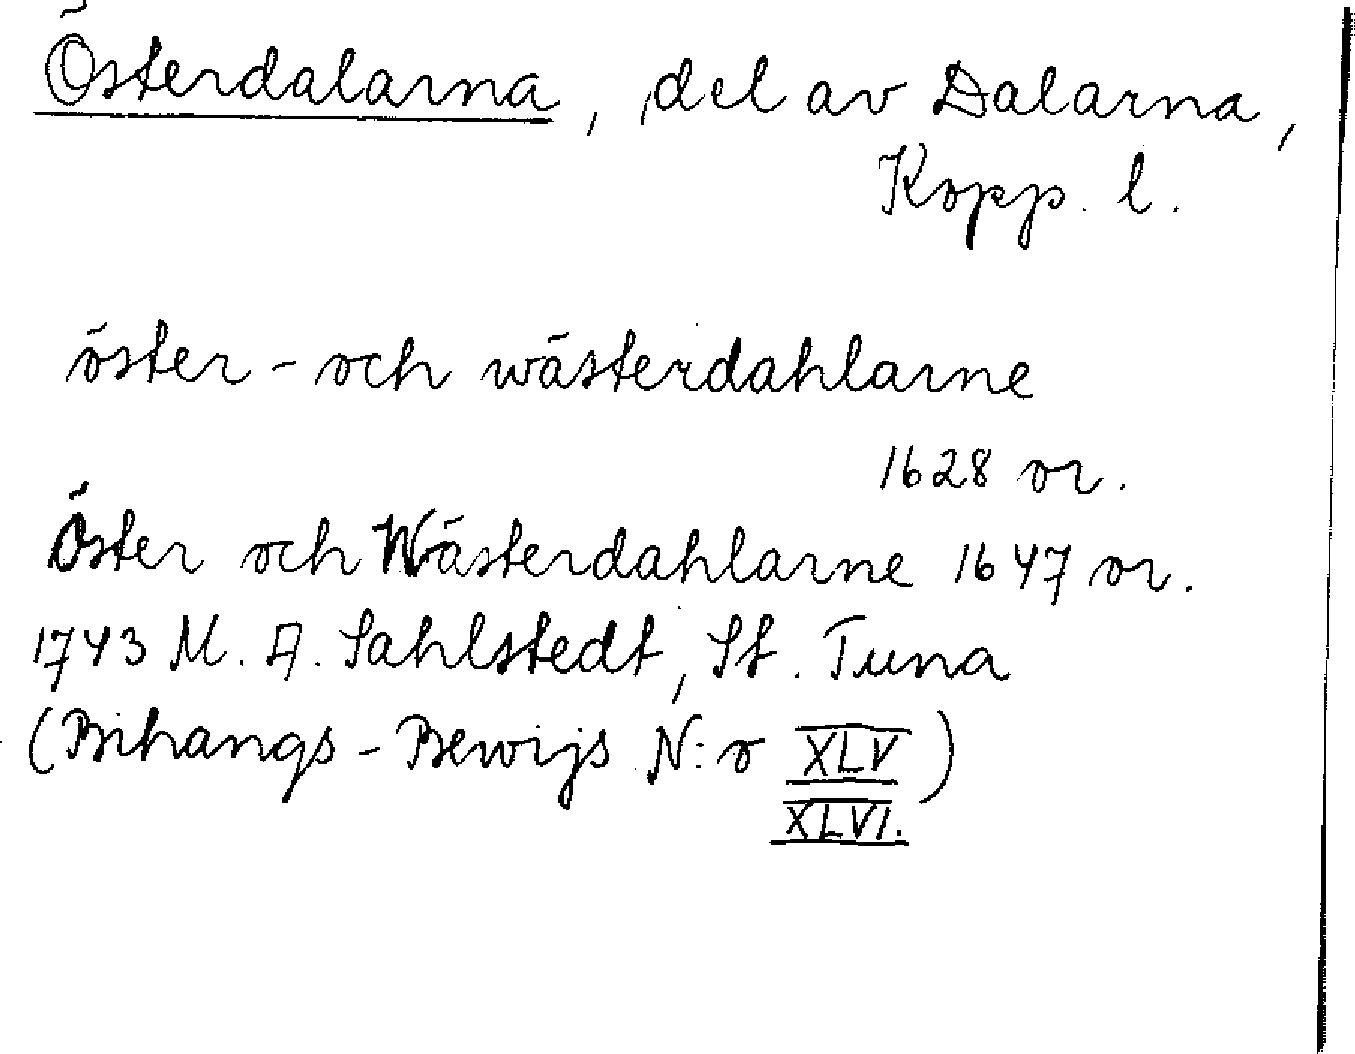 Österdalarna, del av Dalarna,
Kopp. l.
öster - och wästerdahlarne
1628 or.
Öster och Wästerdahlarne 1647 or.
1743 M. A. Sahlstedt, St. Tuna
(Bihangs - Bewijs N:o XLV)
XLVI.